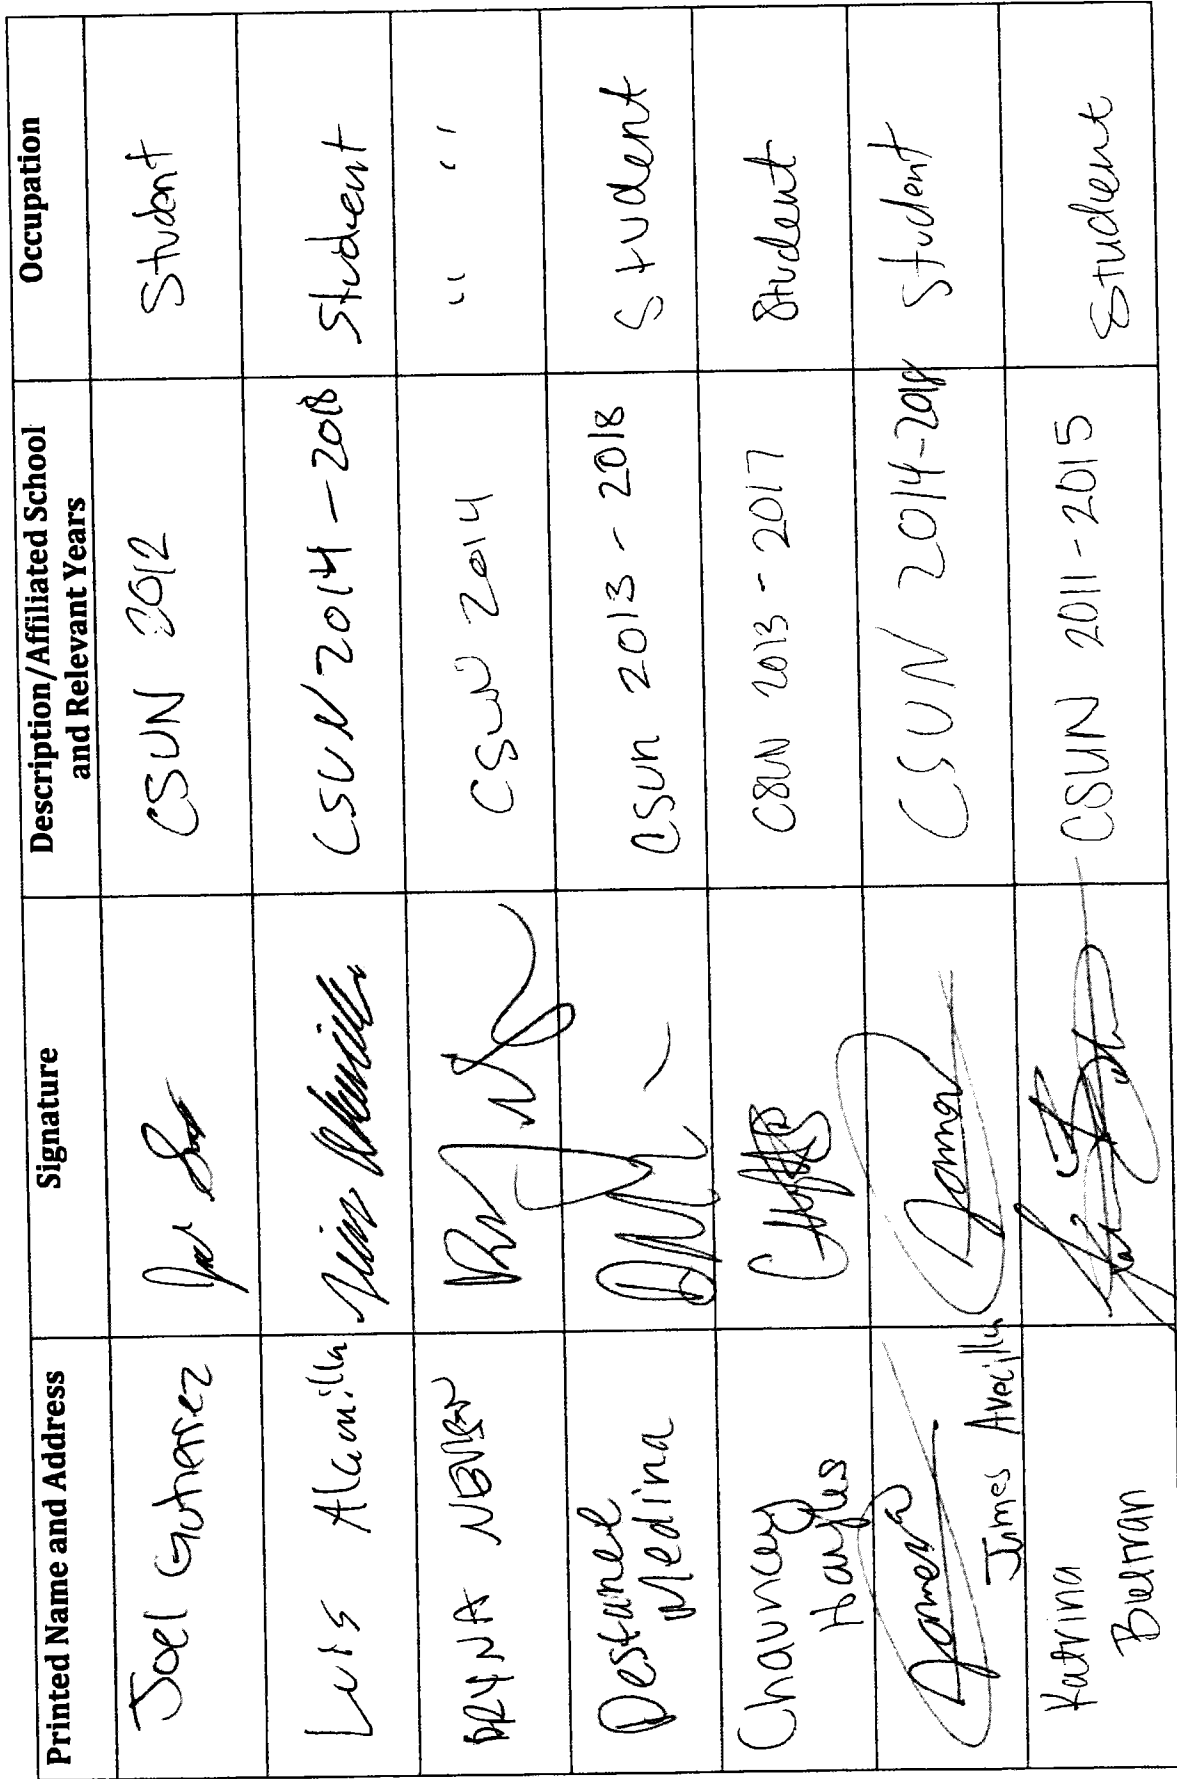 Printed Name and Address Signature Description/Affiliated School and Relevant Years Occupation
Joel Gutierrez CSUN 2012 Student
Luis Alamilla Luis Alamilla CSUN 2014-2018 Student
CSUN 2014 " "
Destanee Medina CSUN 2013-2018 Student
Chauncey Hayles CSUN 2013-2017 Student
James James Avecilla James CSUN 2014-2018 Student
Katrina Beltran CSUN 2011-2015 Student